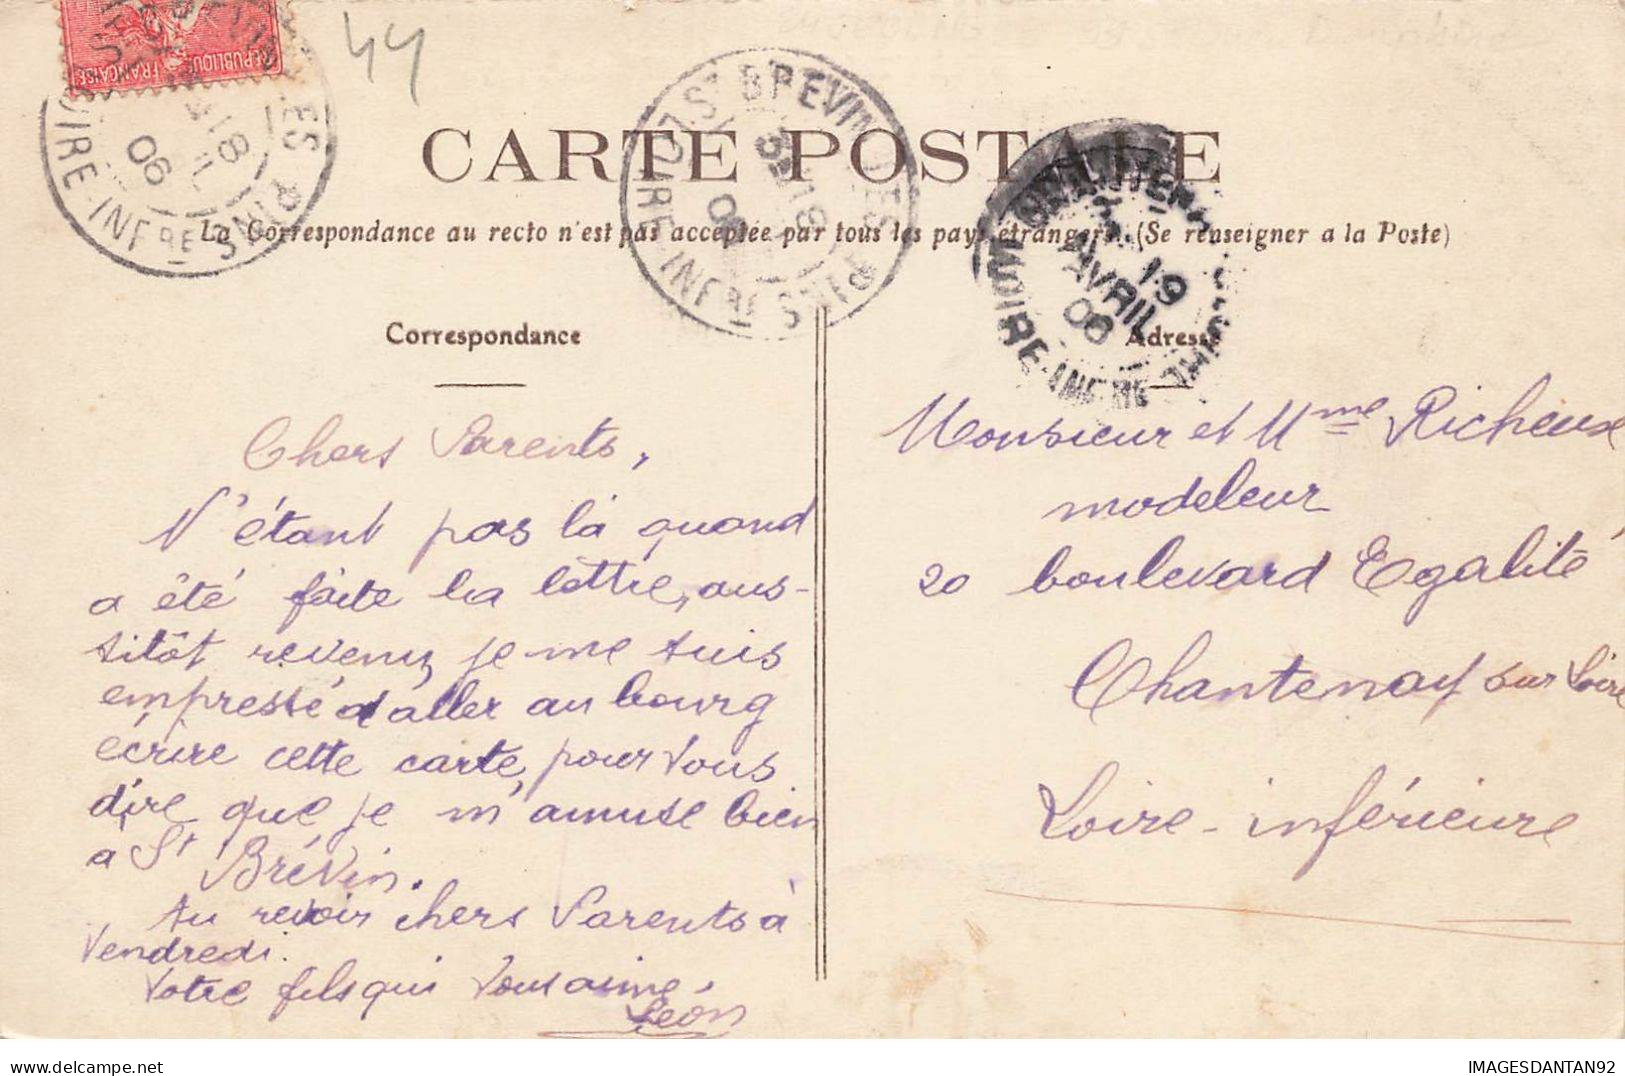 RÉPUBLIQUE FRANÇAISE
44
ST BREVIN LES PINS
18
06
LOIRE-INFRE
ST BREVIN LES PINS
18
06
LOIRE-INFRE
19
AVRIL
06
LOIRE-INFRE
CARTE POSTALE
La Correspondance au recto n'est pas acceptée par tous les pays étrangers. (Se renseigner a la Poste)
Correspondance
Adresse
Chers Parents,
N'étant pas là quand
a êté faite la lettre, aus-
sitôt revenu, je me suis
empressé d'aller au bourg
écrire cette carte, pour vous
dire que je m'amuse bien
a St Brévin.
Au revoir chers Parents à
Vendredi.
Votre fils qui vous aime,
Léon
Monsieur et Mme Richeux
modeleur
20 boulevard Egalité
Chantenay sur Loire
Loire-inférieure
IMAGESDANTAN92